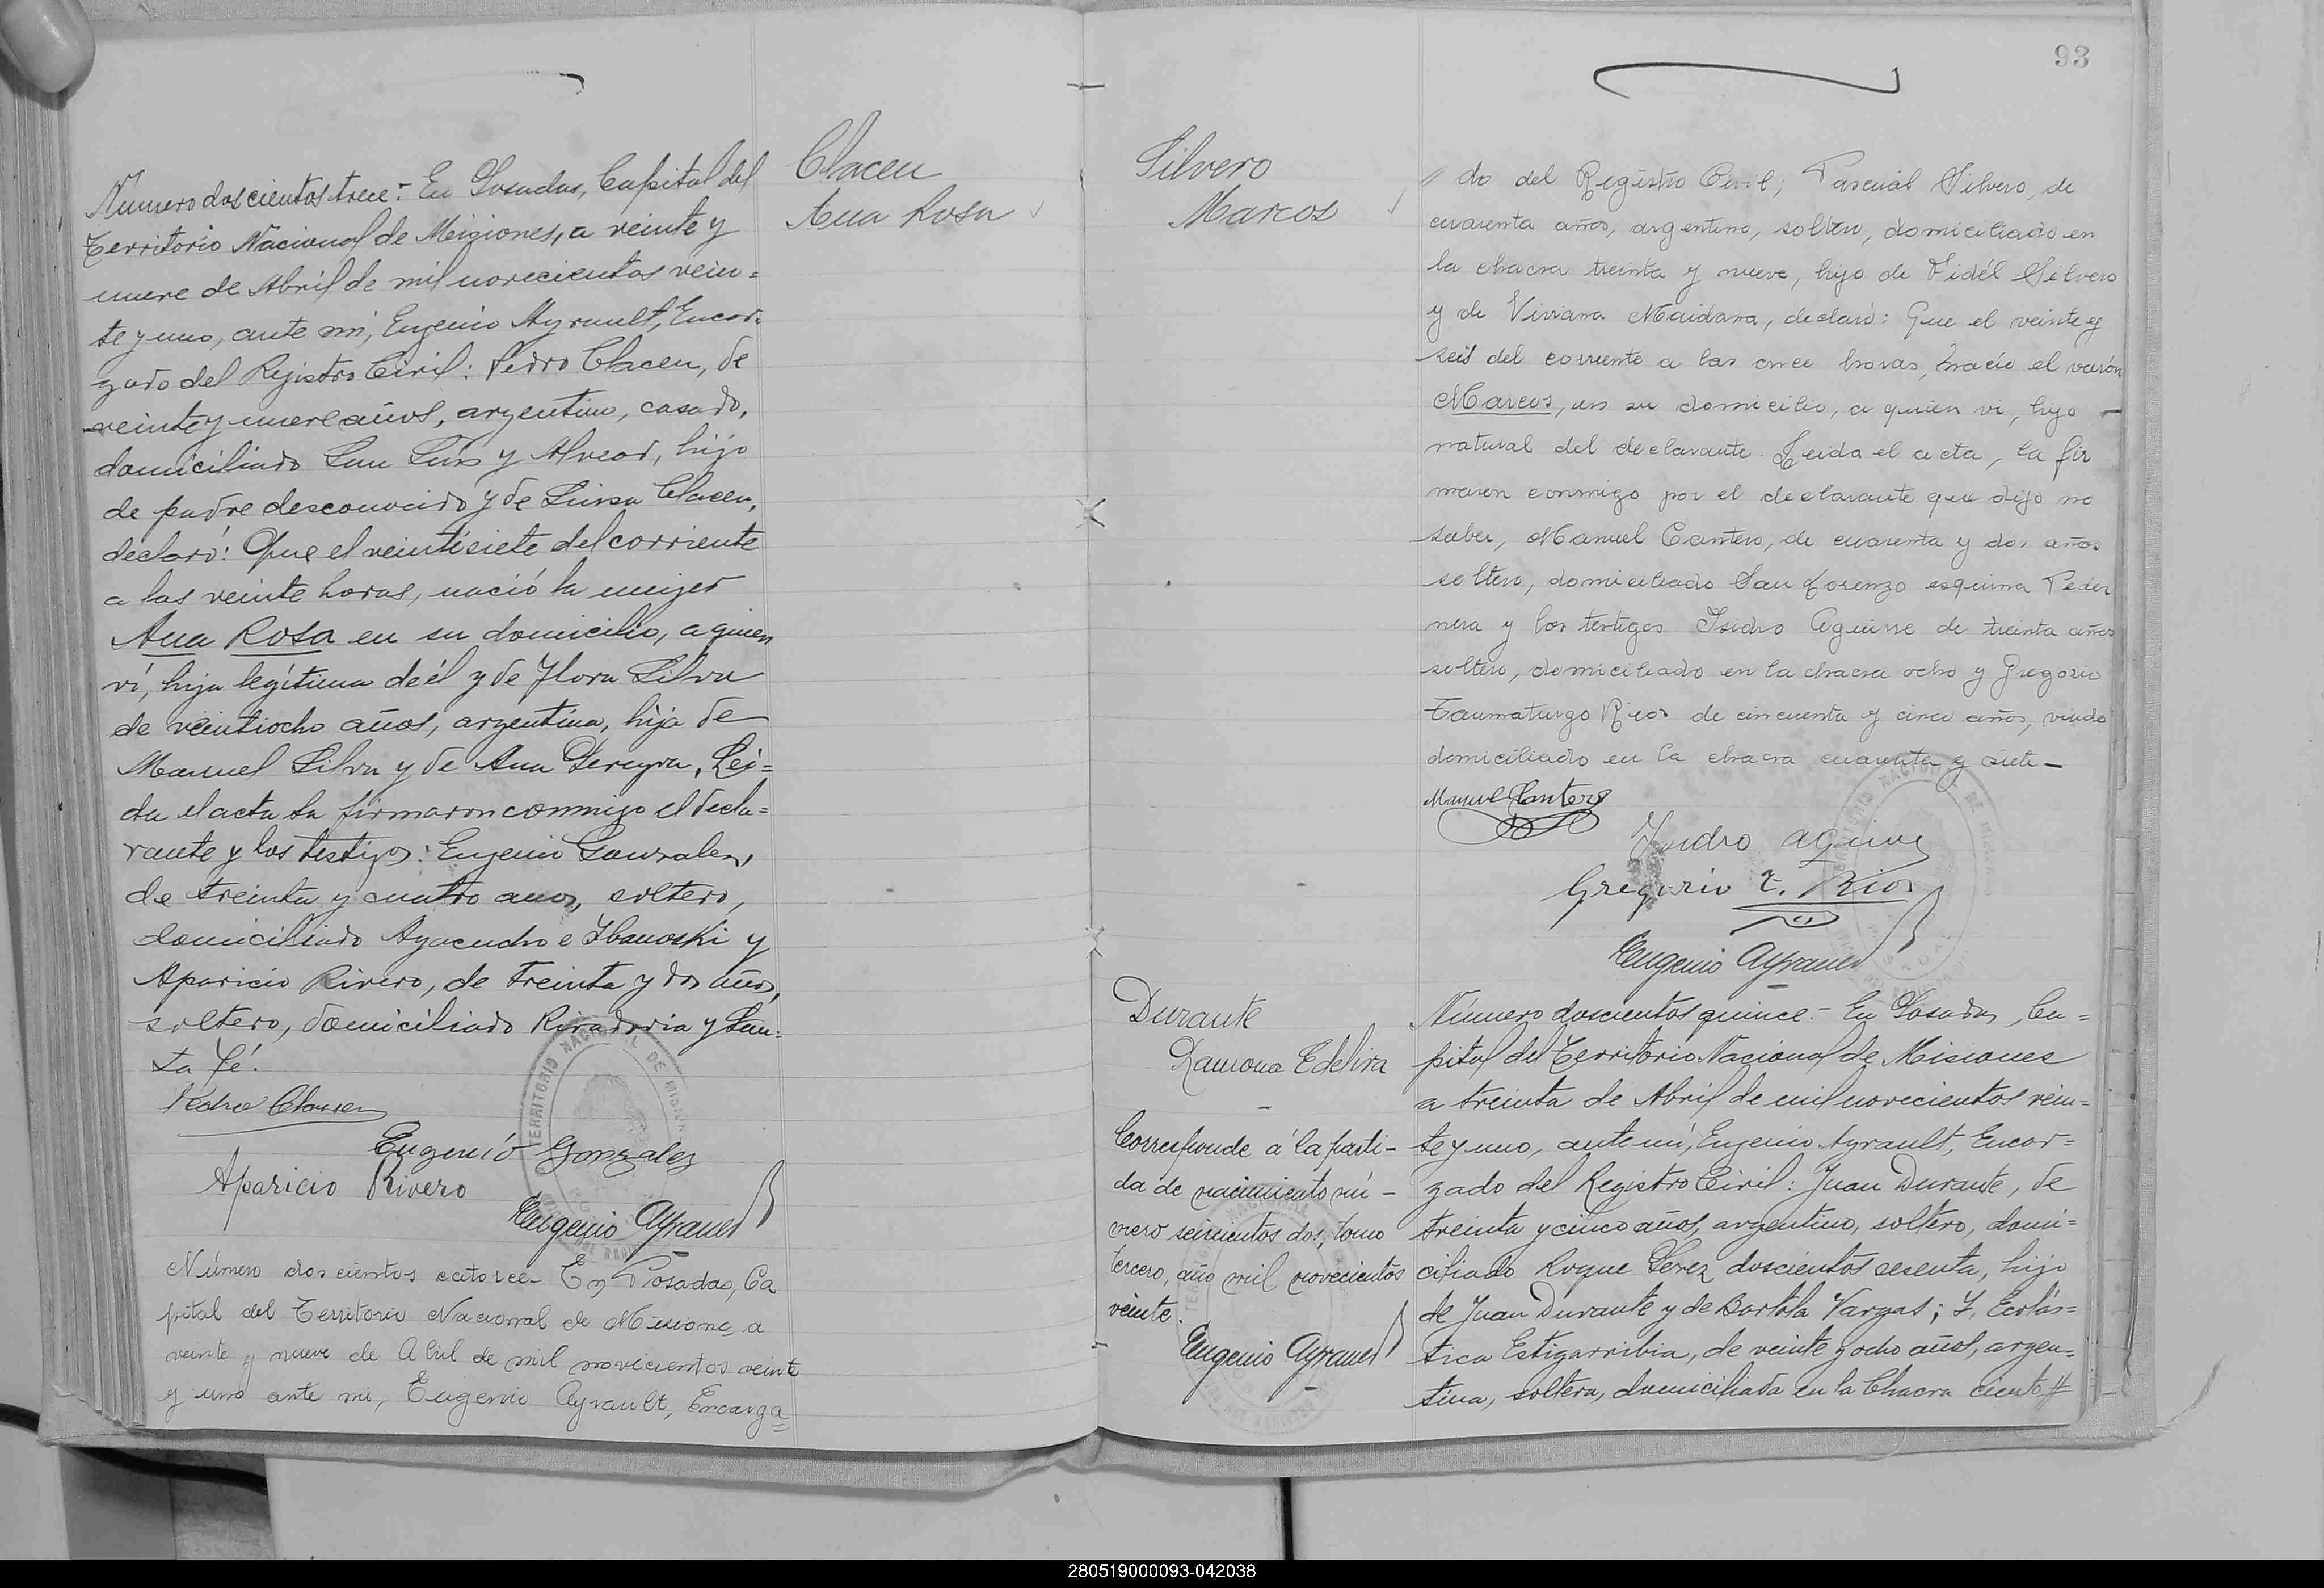 Chacen
Ana Rosa
Número doscientos trece.- En Posadas, Capital del
Territorio Nacional de Misiones, a veinte y
nueve de Abril de mil novecientos vein=
te y uno, ante mí, Eugenio Ayrault, Encar-
gado del Registro Civil: Pedro Chacen, de
veinte y nueve años, argentino, casado,
domiciliado San Luis y Alvear, hijo
de padre desconocido y de Luisa Chacen,
declaró: Que el veintisiete del corriente
a las veinte horas, nació la mujer
Ana Rosa en su domicilio, a quien
ví, hija legítima de él y de Flora Silva
de veintiocho años, argentina, hija de
Manuel Silva y de Ana Pereyra. Lei=
da el acta la firmaron conmigo el decla=
rante y los testigos: Eugenio Gonzalez,
de treinta y cuatro años, soltero,
domiciliado Ayacucho e Ibanoski y
Aparicio Rivero, de treinta y dos años,
soltero, domiciliado Rivadavia y San=
ta Fé.
Pedro Chacen
Eugenió Gonzalez
Aparicio Rivero
Eugenio Ayrault
TERRITORIO NACIONAL DE MISIONES
Número doscientos catorce- En Posadas, Ca
pital del Territorio Nacional de Misiones, a
veinte y nueve de Abril de mil novecientos veinte
y uno ante mi, Eugenio Ayrault, Encarga=
93
Silvero
Marcos
// do del Registro Civil, Pascual Silvero, de
cuarenta años, argentino, soltero, domiciliado en
la chacra treinta y nueve, hijo de Fidél Silvero
y de Viviana Maidana, declaró: Que el veinte y
seis del corriente a las once horas, nació el varón
Marcos, en su domicilio, a quien vi, hijo
natural del declarante. Leida el acta, la fir
maron conmigo por el declarante que dijo no
saber, Manuel Cantero, de cuarenta y dos años
soltero, domiciliado San Lorenzo esquina Peder
nera y los testigos Isidro Aguirre de treinta años
soltero, domiciliado en la chacra ocho y Gregorio
Taumaturgo Rios de cincuenta y cinco años, viudo
domiciliado en la chacra cuarenta y siete-
Manuel Cantero
Isidro Aguirre
Gregorio T. Rios
Eugenio Ayrault
Durante
Ramona Edelira
Corresponde á la parti-
da de nacimiento nú-
mero seiscientos dos, tomo
tercero, año mil novecientos
veinte.
Eugenio Ayrault
Número doscientos quince.- En Posadas, Ca=
pital del Territorio Nacional de Misiones
a treinta de Abril de mil novecientos vein=
te y uno, ante mí, Eugenio Ayrault, Encar=
gado del Registro Civil: Juan Durante, de
treinta y cinco años, argentino, soltero, domi=
ciliado Roque Perez doscientos sesenta, hijo
de Juan Durante y de Bartola Vargas; Y, Escolás=
tica Estigarribia, de veinte y ocho años, argen=
tina, soltera, domiciliada en la Chacra ciento #
280519000093-042038